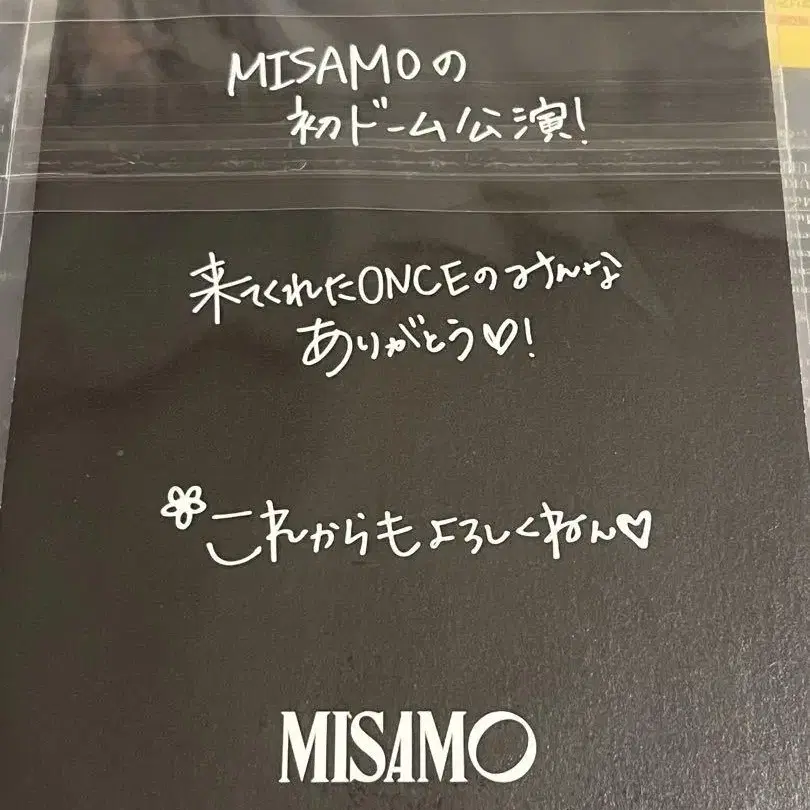 MISAMOの
初ドーム公演!
来てくれたONCEのみんな
ありがとう♡!
これからもよろしくねん♡
MISAMO